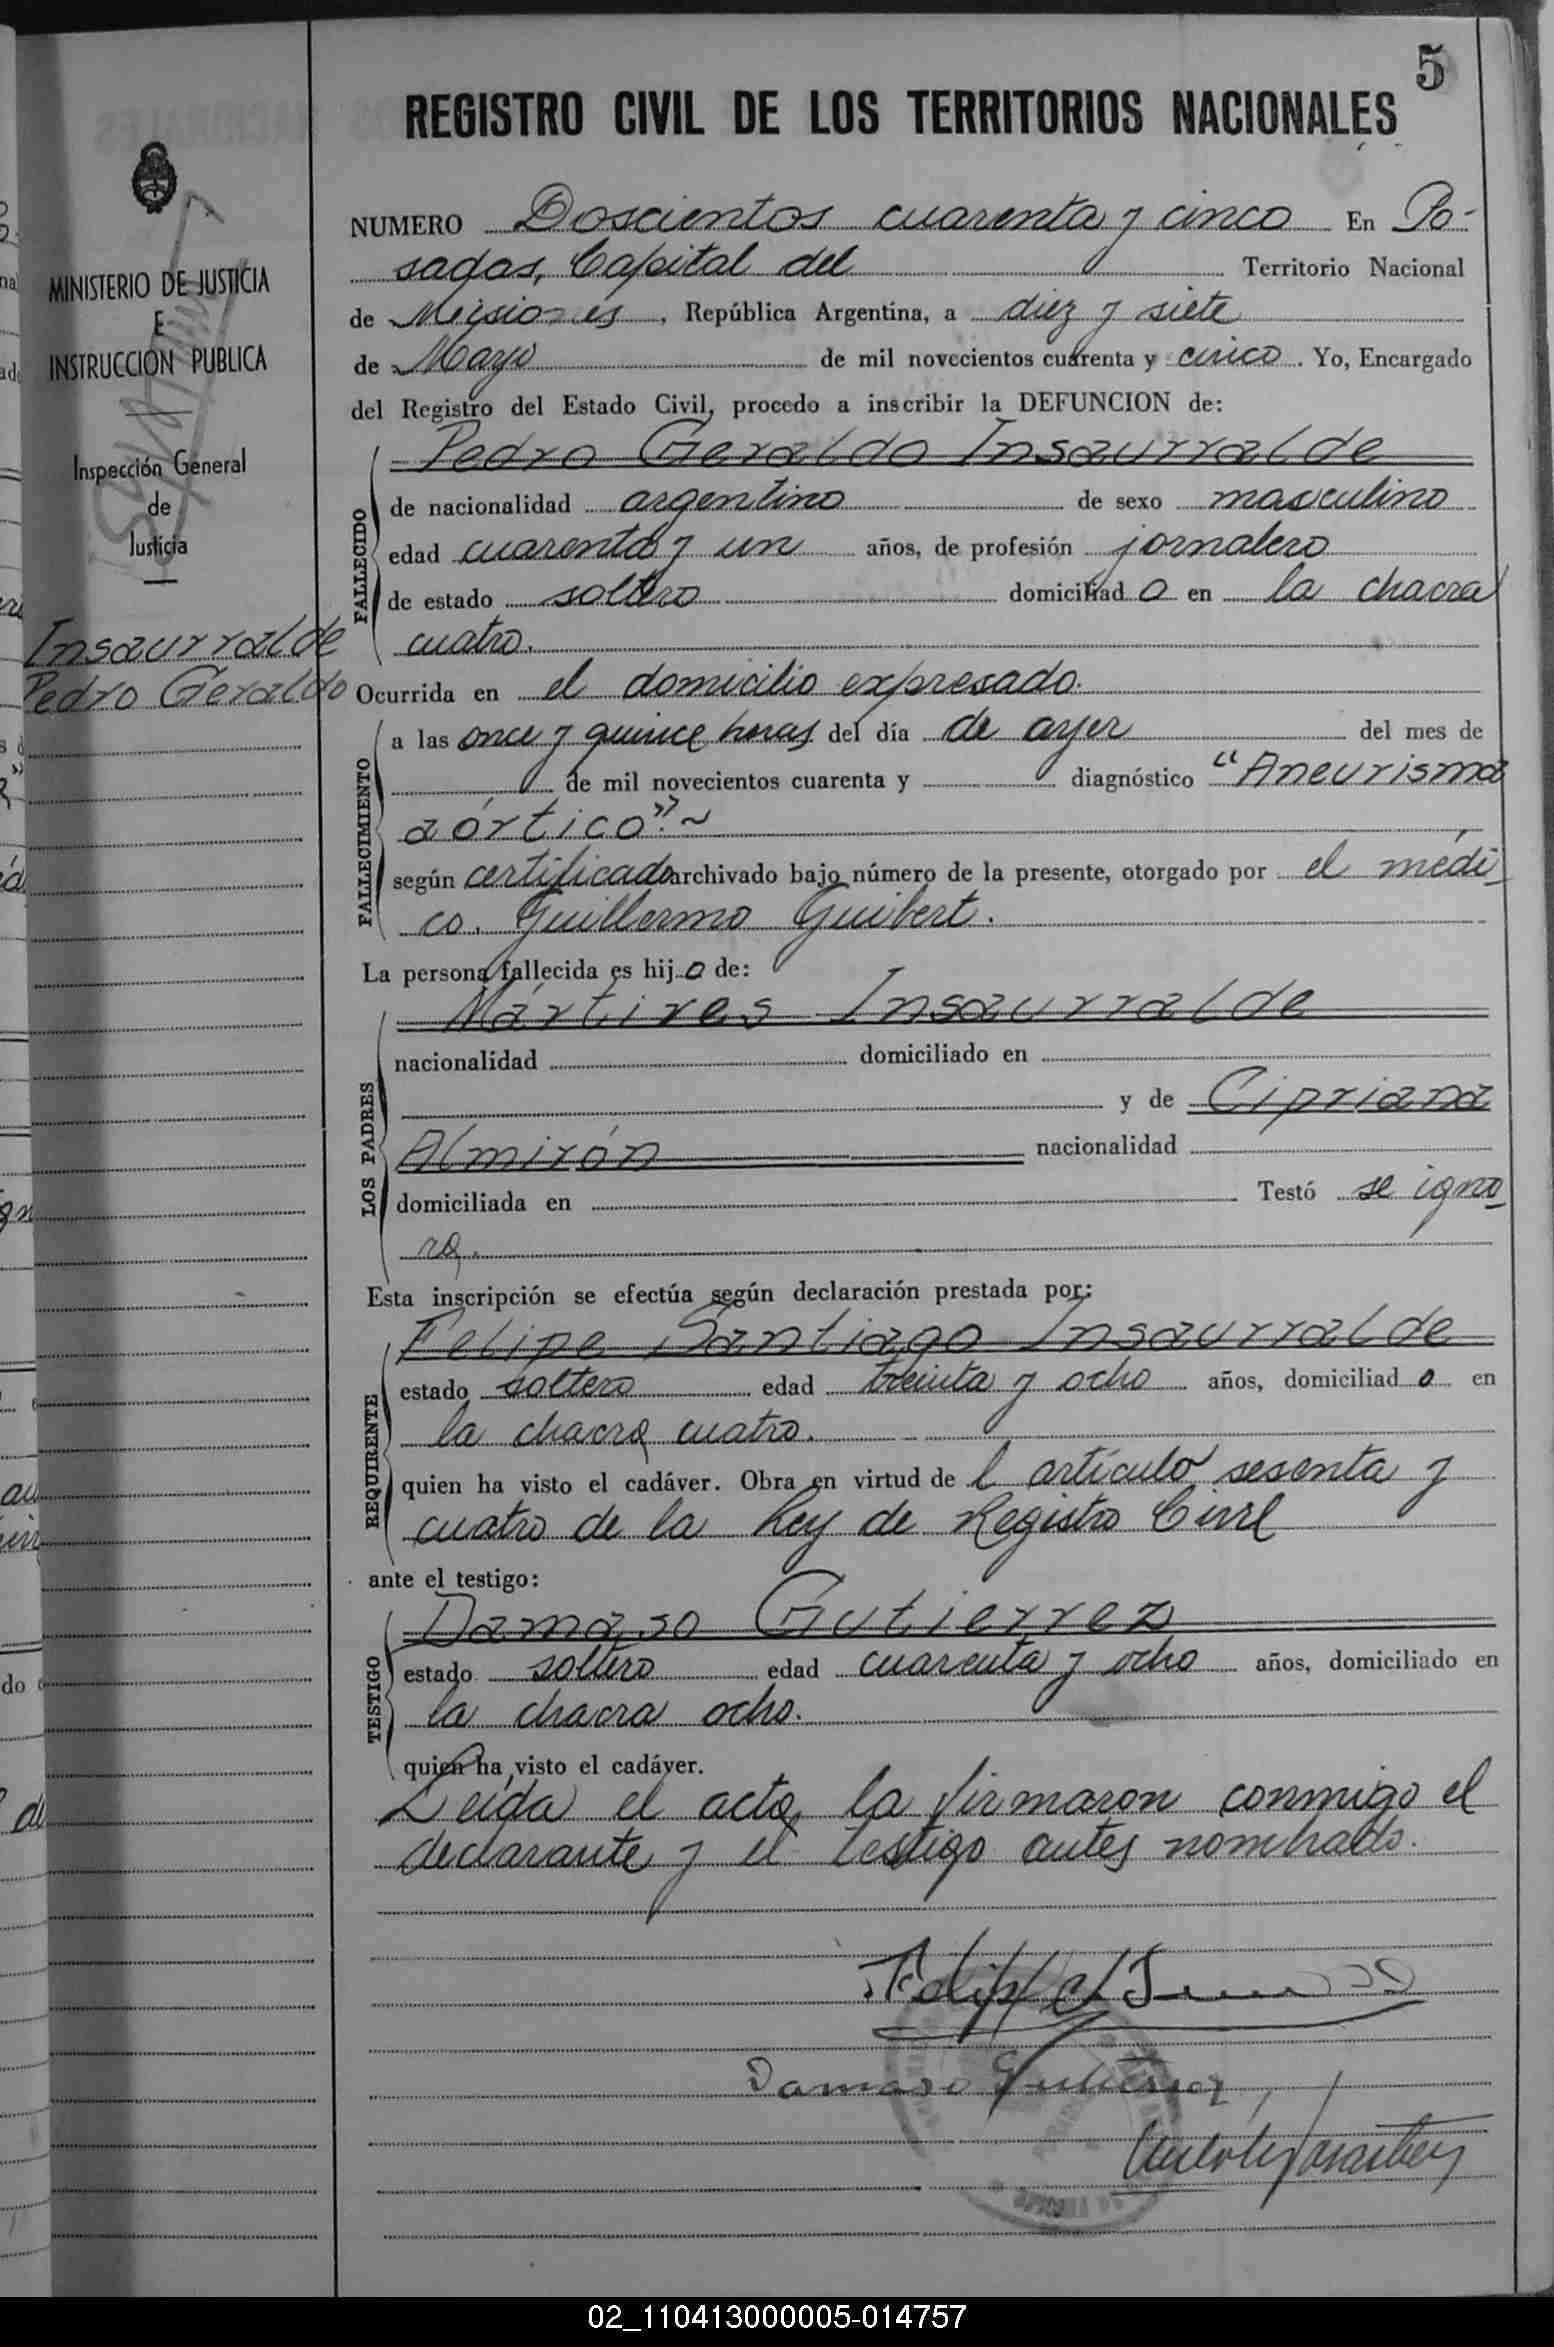 5
REGISTRO CIVIL DE LOS TERRITORIOS NACIONALES
MINISTERIO DE JUSTICIA
E
INSTRUCCION PUBLICA
Inspección General
de
Justicia
Insaurralde
Pedro Geraldo
NUMERO Doscientos cuarenta y cinco En Po-
sadas, Capital del Territorio Nacional
de Misiones, República Argentina, a diez y siete
de Mayo de mil novecientos cuarenta y cinco. Yo, Encargado
del Registro del Estado Civil, procedo a inscribir la DEFUNCION de:
FALLECIDO
Pedro Geraldo Insaurralde
de nacionalidad argentino de sexo masculino
edad cuarenta y un años, de profesión jornalero
de estado soltero domiciliad o en la chacra
cuatro.
Ocurrida en el domicilio expresado.
FALLECIMIENTO
a las once y quince horas del día de ayer del mes de
de mil novecientos cuarenta y diagnóstico "Aneurisma
aórtico".~
según certificado archivado bajo número de la presente, otorgado por el médi-
co. Guillermo Guibert.
La persona fallecida es hij o de:
LOS PADRES
Mártires Insaurralde
nacionalidad domiciliado en
y de Cipriana
Almirón nacionalidad
domiciliada en Testó se igno-
ra.
Esta inscripción se efectúa según declaración prestada por:
REQUIRENTE
Felipe Santiago Insaurralde
estado soltero edad treinta y ocho años, domiciliad o en
la chacra cuatro.
quien ha visto el cadáver. Obra en virtud de l artículo sesenta y
cuatro de la Ley de Registro Civil
ante el testigo:
TESTIGO
Damaso Gutierrez
estado soltero edad cuarenta y ocho años, domiciliado en
la chacra ocho.
quien ha visto el cadáver.
Leída el acta, la firmaron conmigo el
declarante y el testigo antes nombrado.
Damaso Gutierrez
02_110413000005-014757